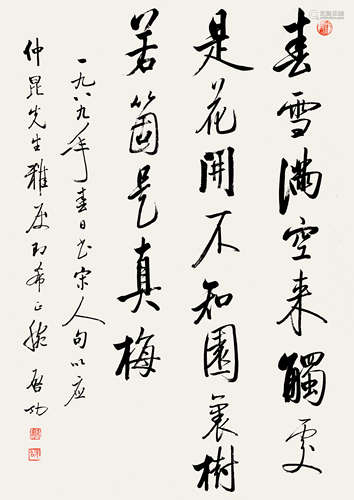 春雪满空来觸处
是花開不知園裏樹
若箇是真梅
一九八九年春日书宋人句以应
仲昆先生雅属即希正腕 启功